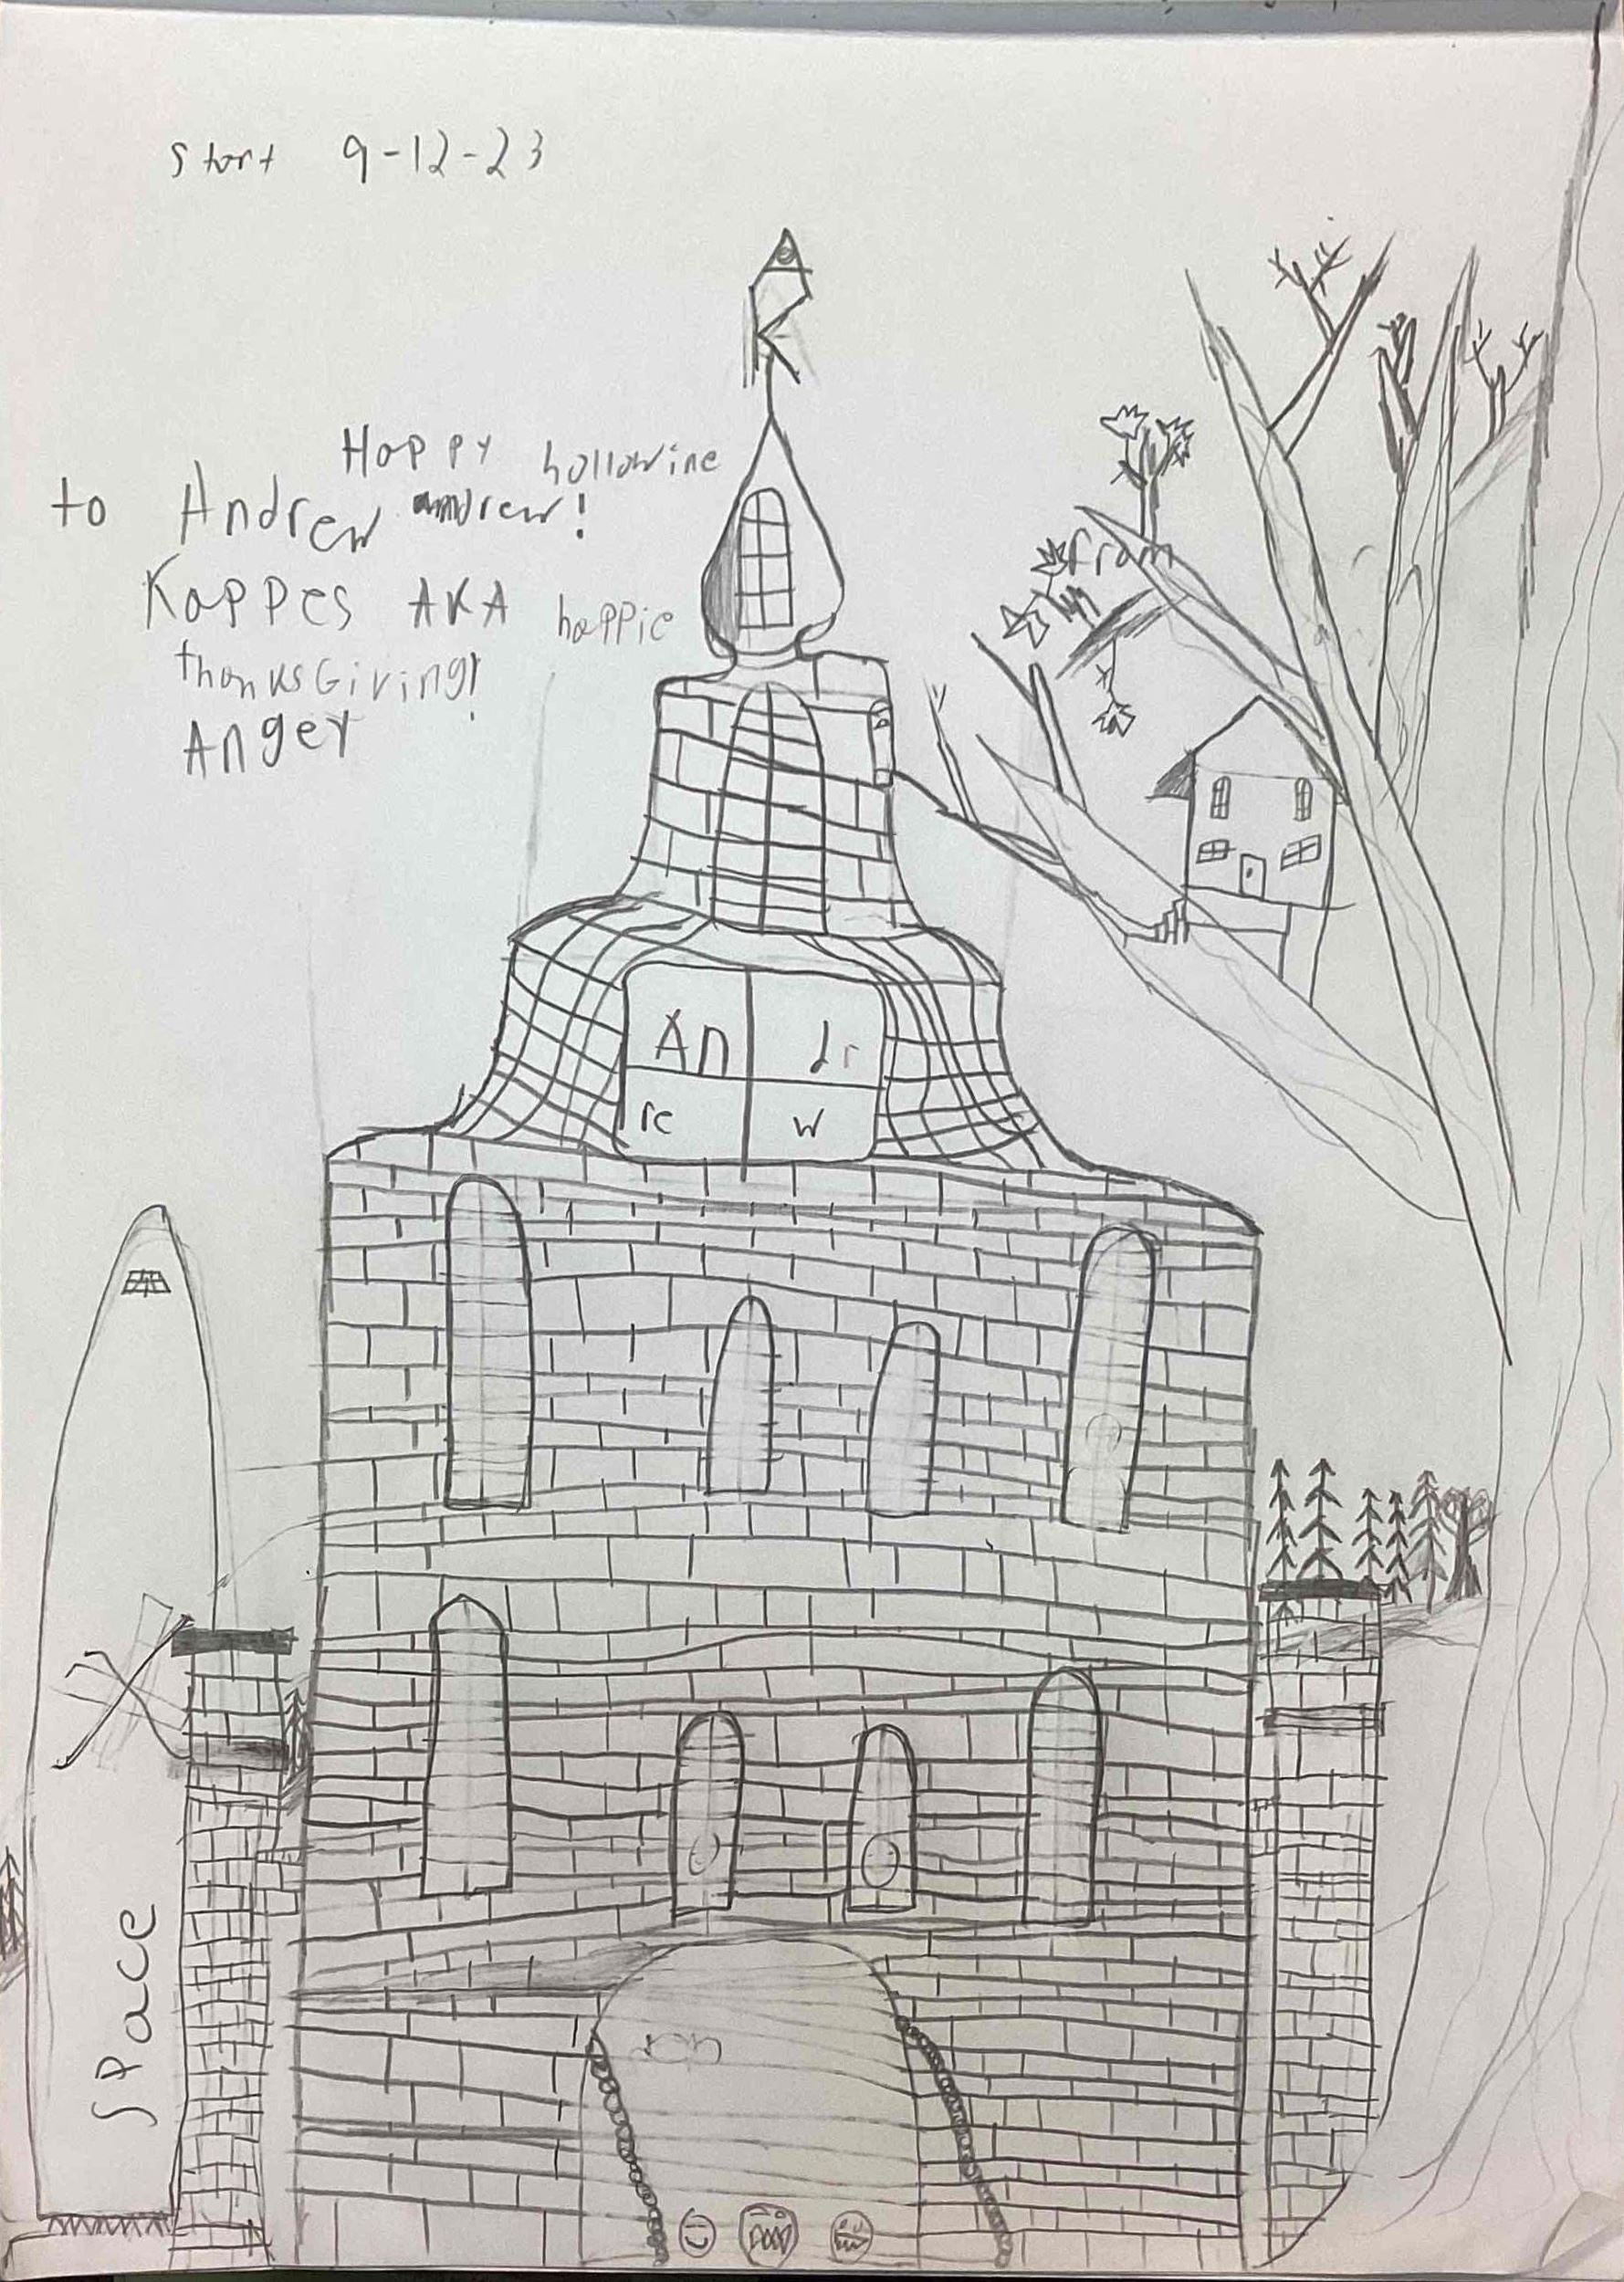 start 9-12-23
Happy hollowine
to Andrew andrew!
Kappes AKA happie
thanksGiving!
Anger
from
An dr
re w
Space